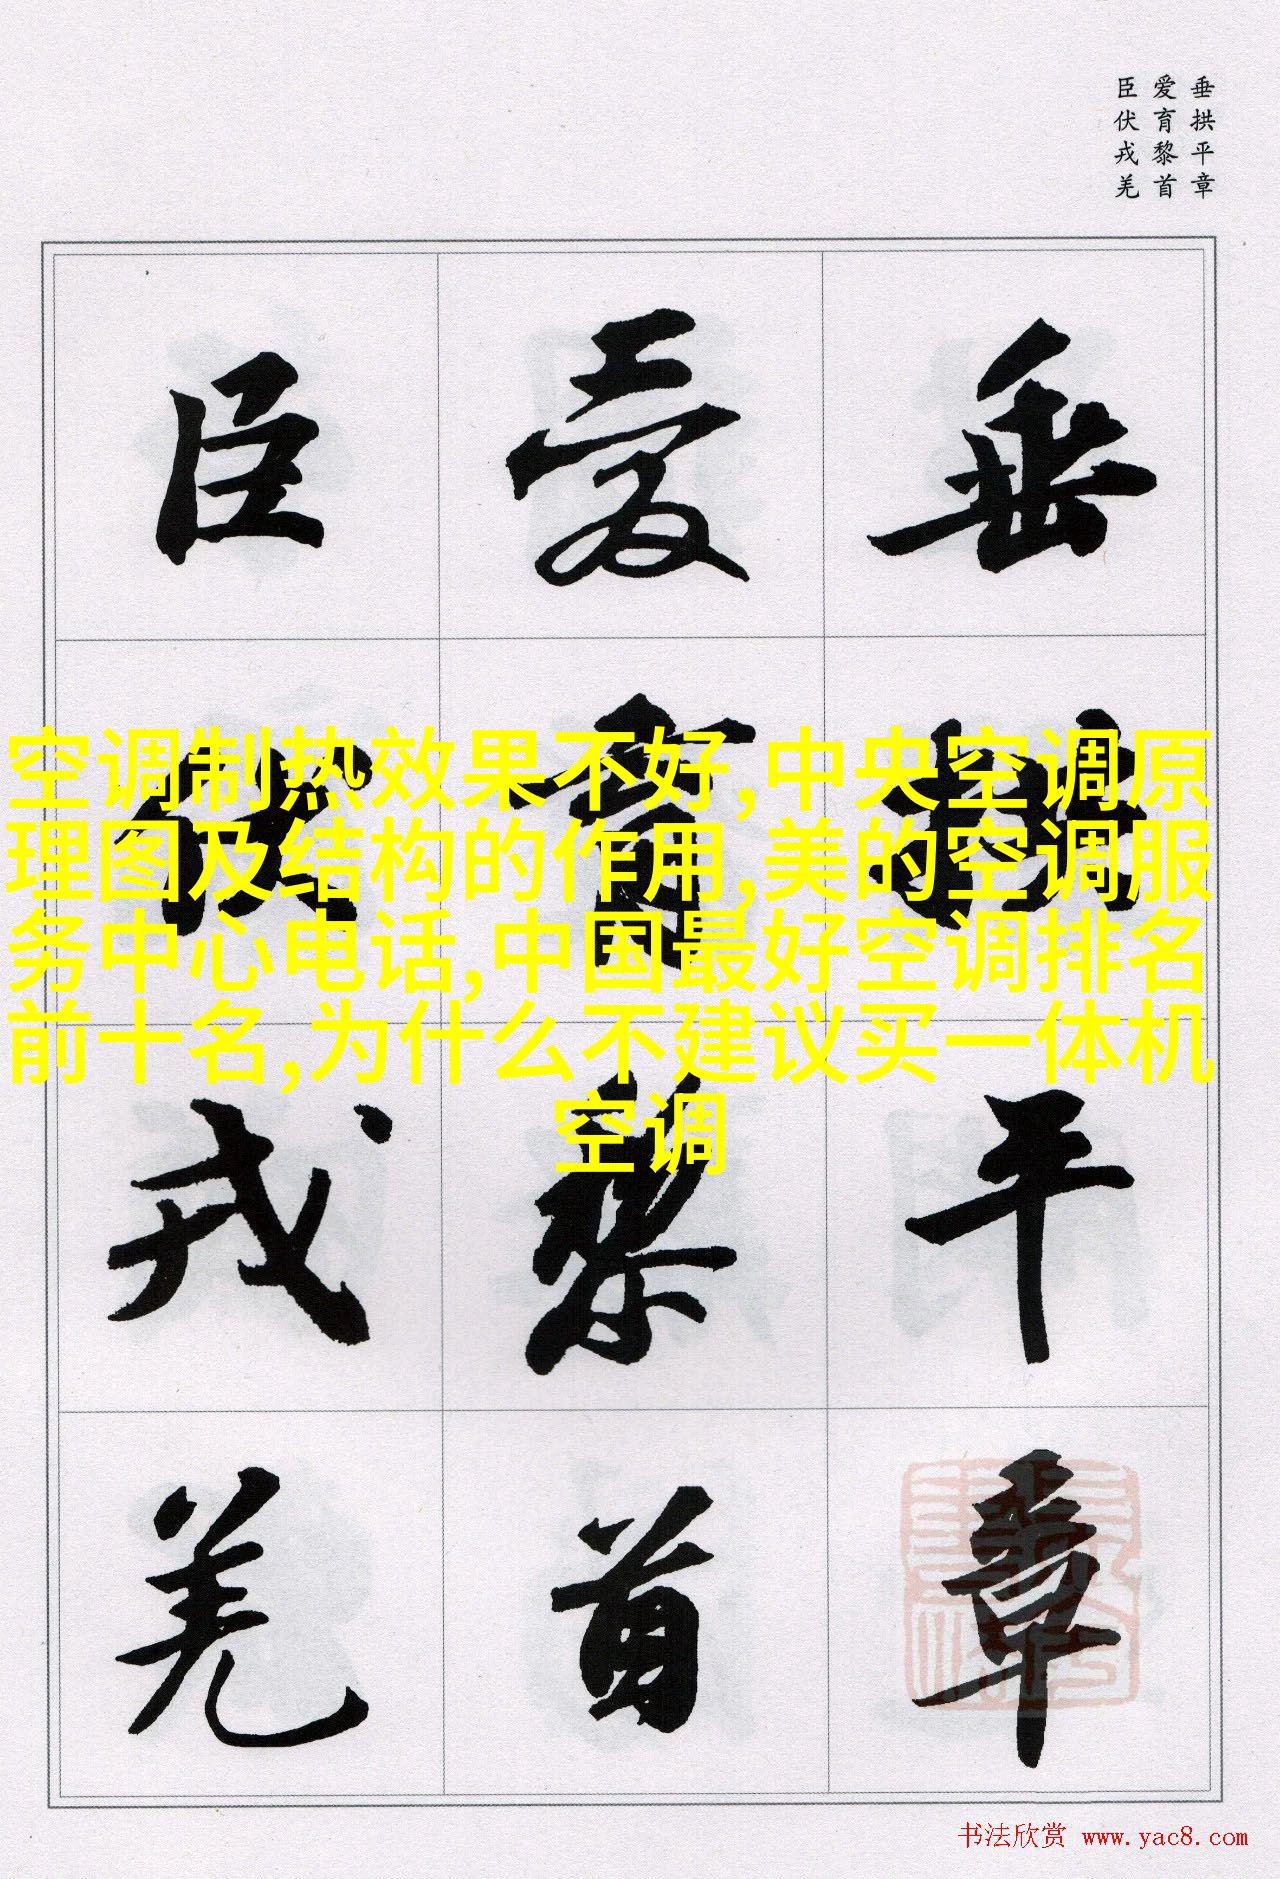 垂拱平章
爱育黎首
臣伏戎羌
垂拱平章
爱育黎首
臣伏戎羌
空调制热效果不好,中央空调原
理图及结构的作用,美的空调服
务中心电话,中国最好空调排名
前十名,为什么不建议买一体机
空调
书法欣赏 www.yac8.com